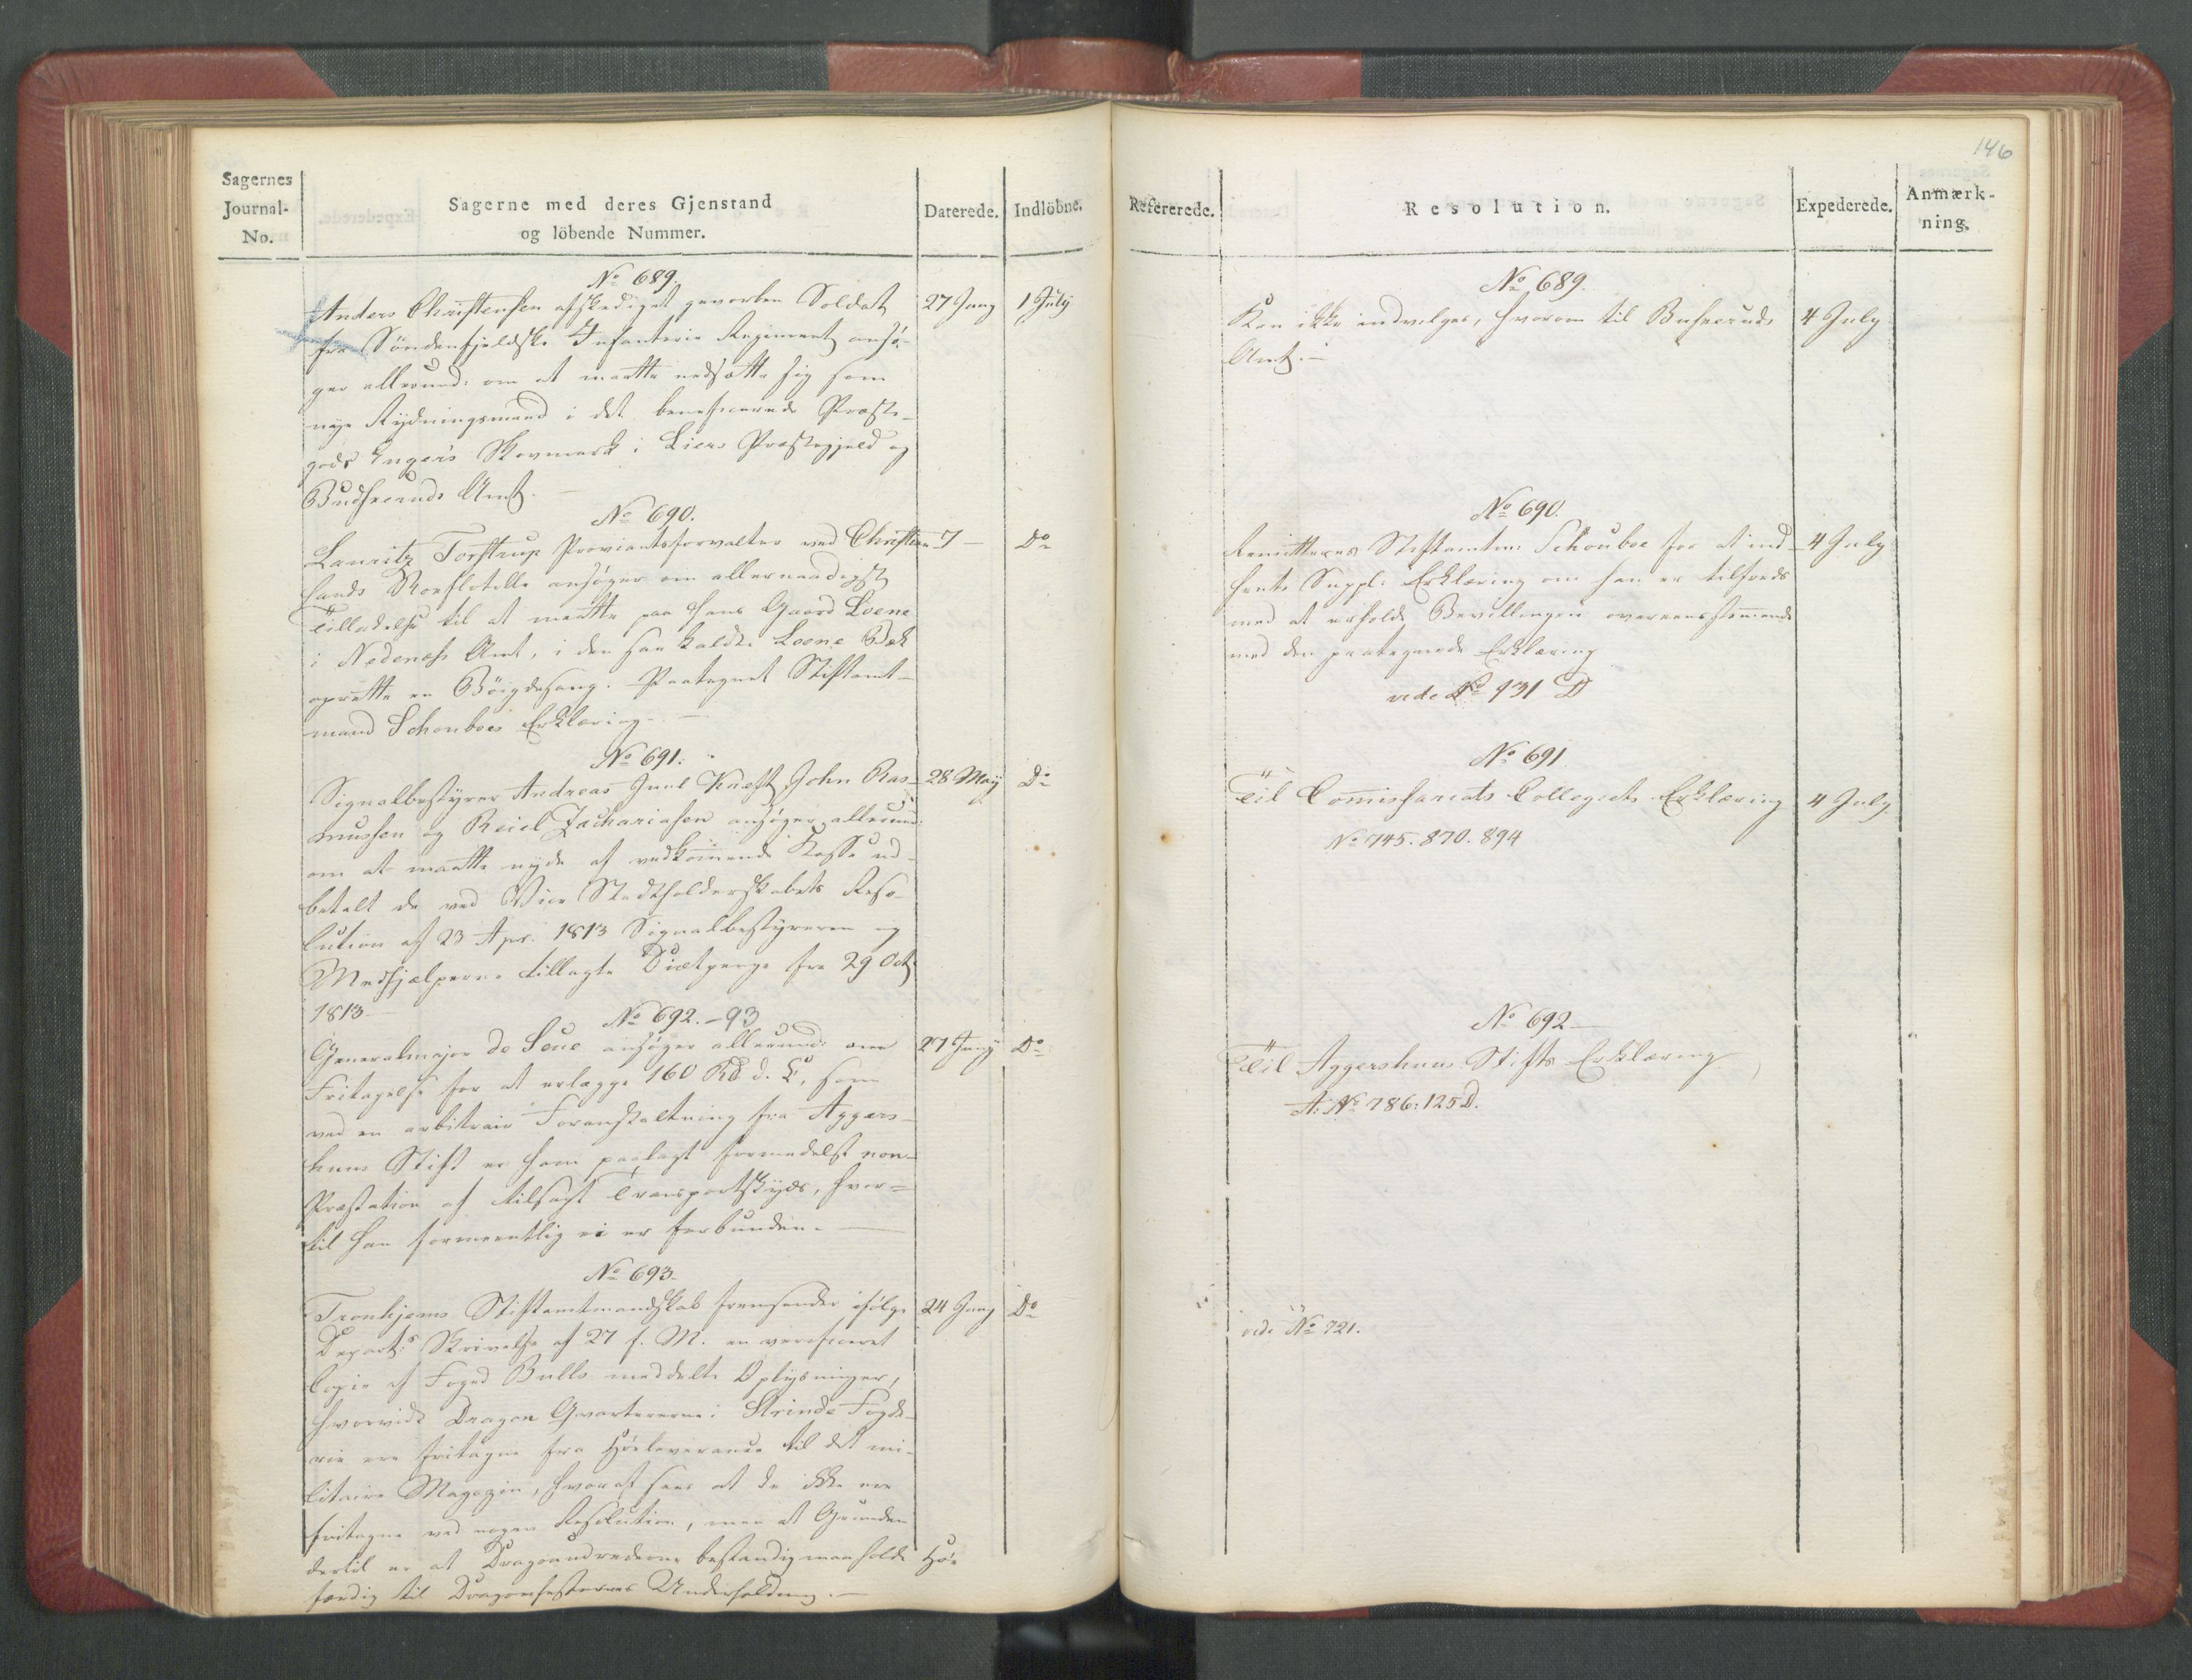 Sagernes
Journal-
No.
Sagerne med deres Gjenstand
og löbende Nummer.
Daterede.
Indlöbne.
No 689.
Anders Christensen afskediget geworben Soldat
fra Söndenfjeldske Infanterie Regiment ansö-
ger allerund: om at maatte nedsætte sig som
nye Rydningsmand i det beneficerede Præste-
gods Enger's Skovmark i Liers Præstegjeld og
Buskeruds Amt. —
27 Juny
1 July
No 690.
Lauritz Torstrup Proviantsforvalter ved Christian-
sands Roeflotille ansöger om allernaadigst
Tilladelse til at maatte paa hans Gaard Loene
i Nedenæs Amt, i den saa kaldte Loene Bæk
oprette en Böigdesaug. Paategnet Stiftamt-
mand Schouboes Erklæring. —
7 —
Do
No 691.
Signalbestyrer Andreas Juul Knest, John Ras-
mussen og Reiel Zachariasen ansöger allerund:
om at maatte nyde af vedkommende Kasse ud-
betalt de ved Vice Stadtholderskabets Reso-
lution af 23 Apr. 1813 Signalbestyreren og
Medhjelperne tillagte Diætpenge fra 29 Oct.
1813 —
28 May
Do
No 692. - 93
Generalmajor de Seue ansöger allerund: om
Fritagelse for at erlægge 160 Rd. d. C., som
ved en arbitrair Foranstaltning fra Aggers-
huus Stift er ham paalagt formedelst non-
Præstation af tilsagt Transportskyds, hvor-
til han formeentlig ei er forbunden. —
27 Juny
Do
No 693.
Tronhjems Stiftamtmandskab fremsender ifölge
Departs Skrivelse af 27 f. M. en verificeret
Copie af Foged Bulls meddelte Oplysninger,
hvorvidt Dragon Qvartererne i Strinde Fogde-
rie ere fritagne fra Höeleverance til det mi-
litaire Magazin, hvoraf sees at de ikke ere
fritagne ved nogen Resolution, men at Grunden
dertil er at Dragonudrederne bestandig maa holde Höe
færdig til Dragonhestenes Underholdning. —
24 Juny
Do
146
Refererede.
Resolution.
Expederede.
Anmærk-
ning.
No 689.
Kan ikke indvilges, hvorom til Buskeruds
Amt. —
4 July
No 690.
Remitteres Stiftamtm: Schouboe for at ind-
hente Suppl: Erklæring om han er tilfreds
med at erholde Bevillingen overeensstemmende
med den paategnede Erklæring
vide No 931 D
4 July
No 691
Til Commissariats Collegiets Erklæring
No 745. 870. 894
4 July.
No 692 —
Til Aggershuus Stifts Erklæring
A: No 786: 125 D.
vide No 721.